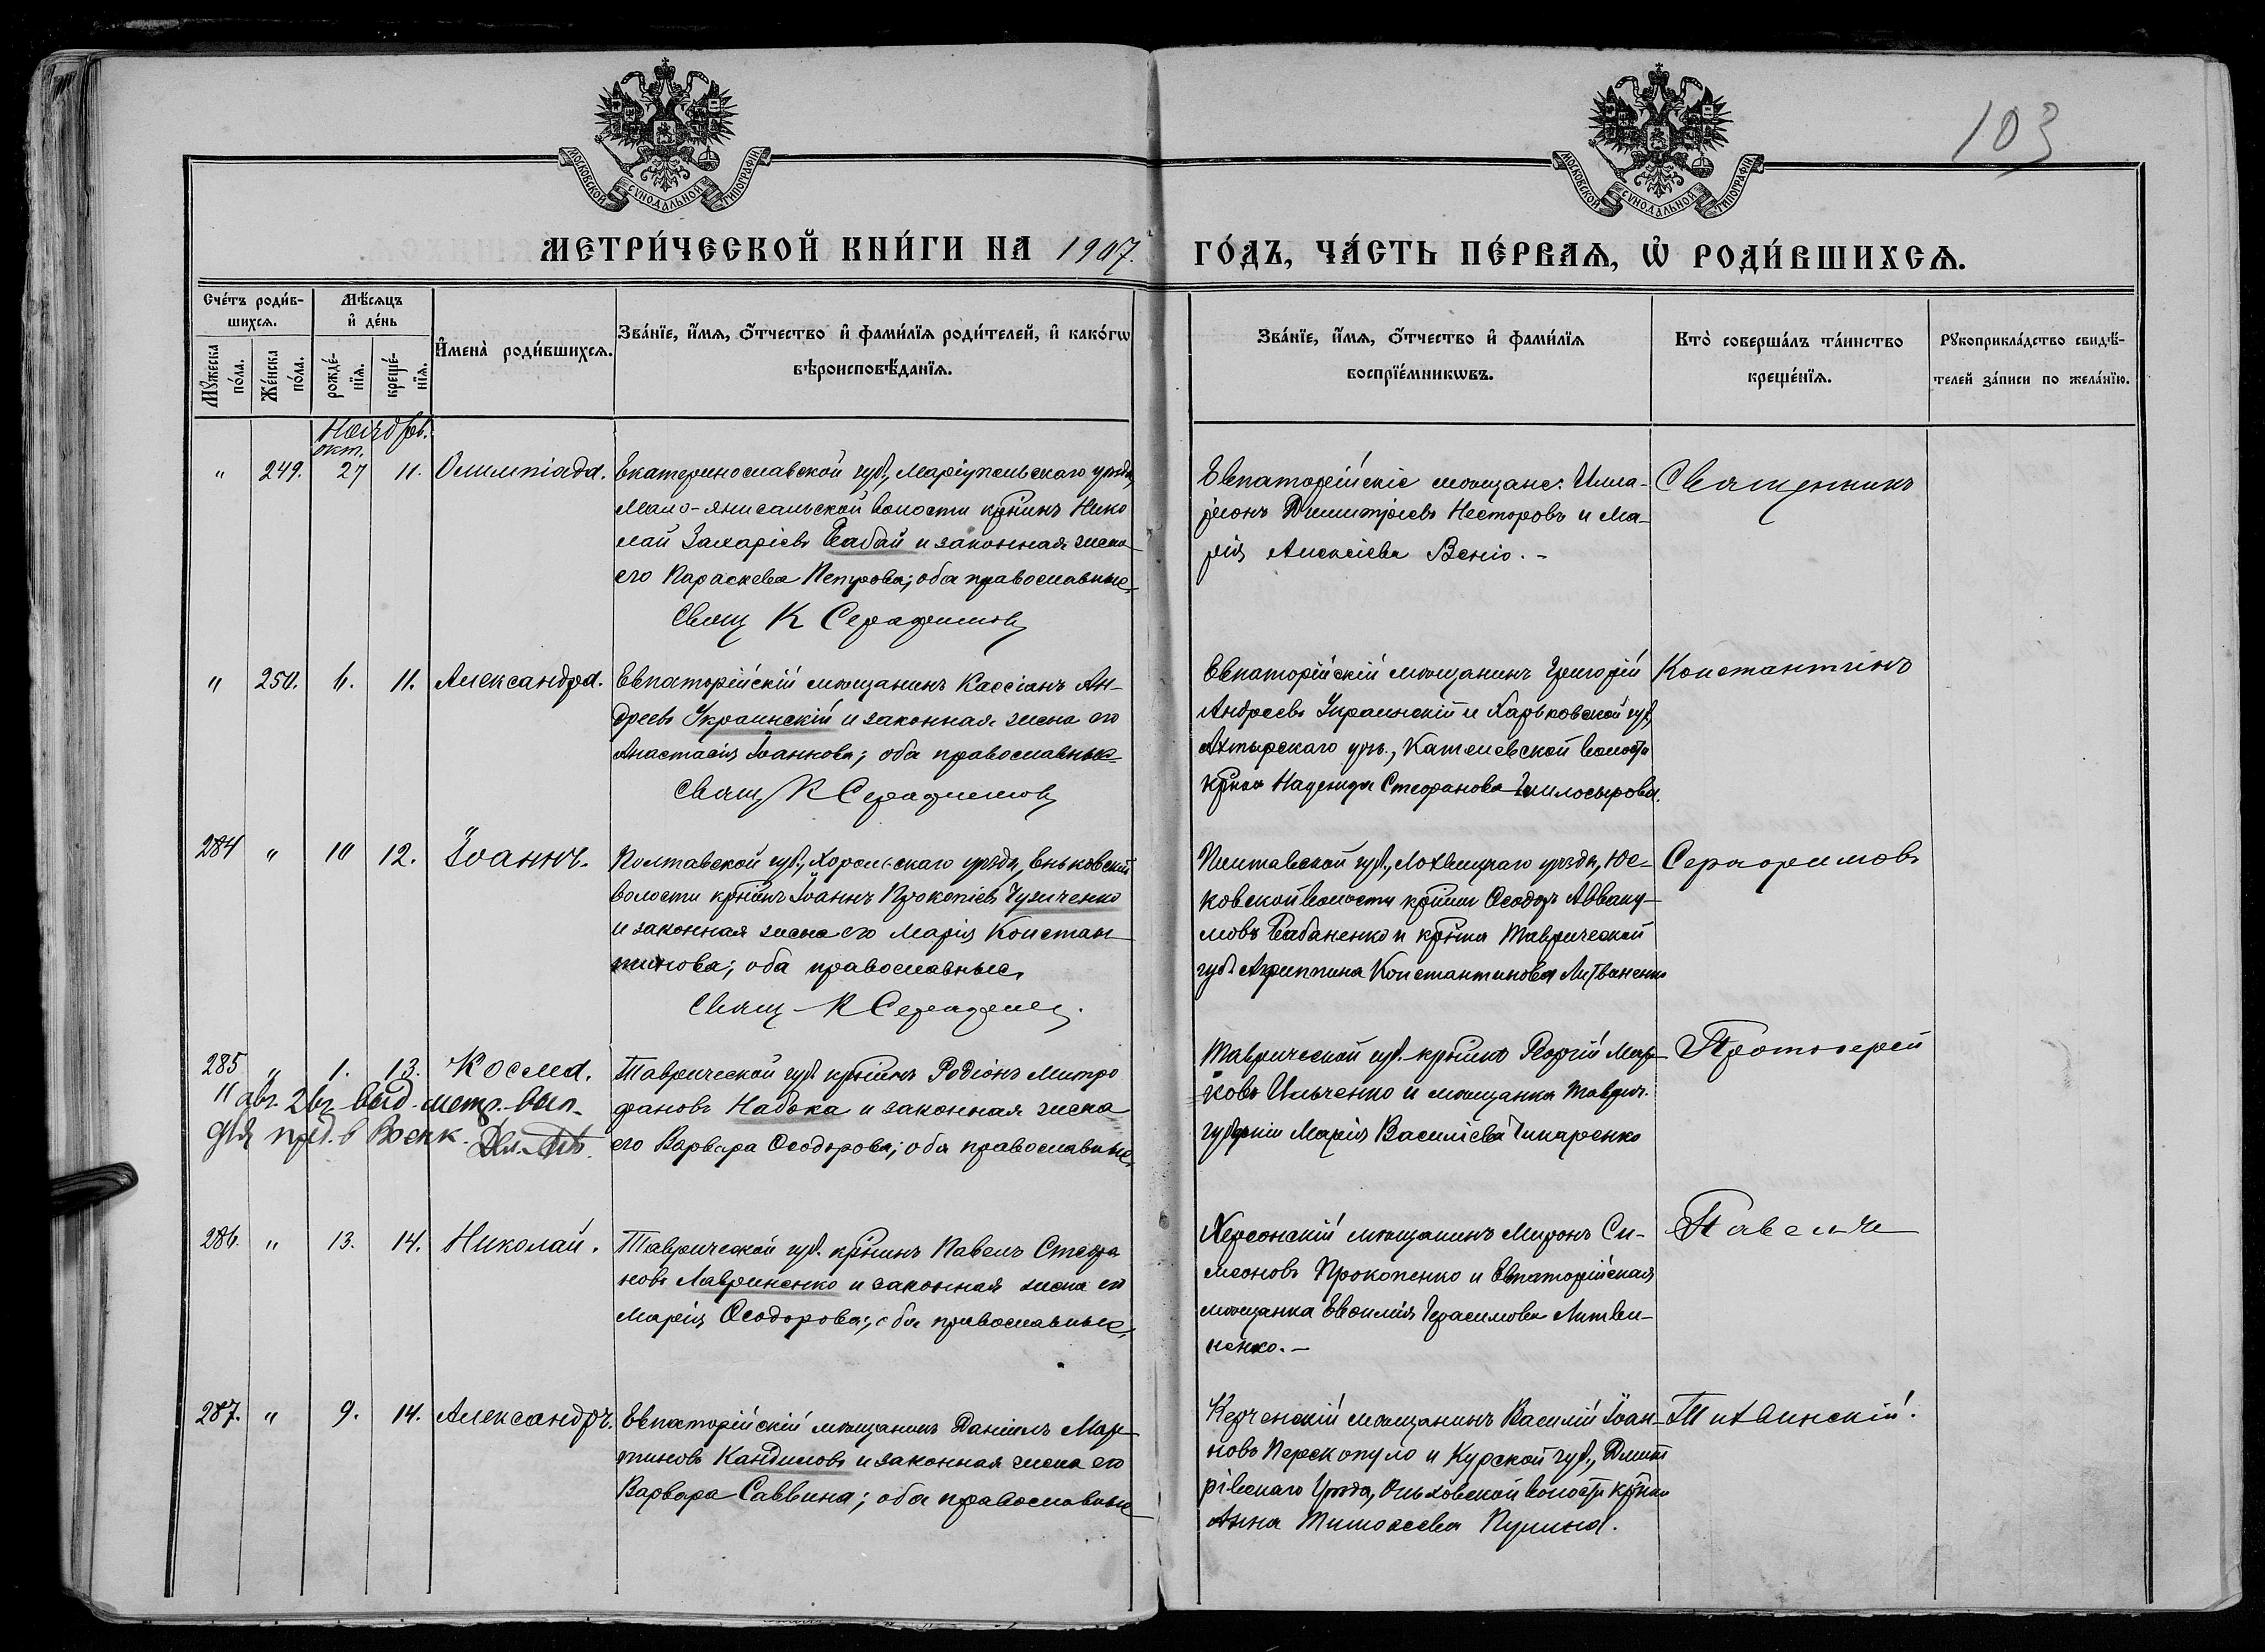 103
МОСКОВСКОЙ СѴНОДАЛЬНОЙ ТИПОГРАФІИ
МОСКОВСКОЙ СѴНОДАЛЬНОЙ ТИПОГРАФІИ
МЕТРИ́ЧЕСКОЙ КНИ́ГИ НА 1907. ГО́ДЪ, ЧА́СТЬ ПЕ́РВАѦ, Ѡ҆ РОДИ́ВШИХСѦ.
Сче́тъ роди́в-
шихсѧ.
Мꙋ́жеска по́ла.
Же́нска по́ла.
Мѣ́сѧцъ
и҆ де́нь
рожде́-нїѧ.
креще́-нїѧ.
И҆мена̀ роди́вшихсѧ.
Зва́нїе, и҆́мѧ, ѻ҆́тчество и҆ фами́лїѧ роди́телей, и҆ како́гѡ
вѣроисповѣ́данїѧ.
Зва́нїе, и҆́мѧ, ѻ҆́тчество и҆ фами́лїѧ
воспрїе́мникѡвъ.
Кто̀ соверша́лъ та́инство
креще́нїѧ.
Рꙋкоприкла́дство свидѣ́-
телей за́писи по жела́нїю.
Ноябрь.
окт.
" 249. 27 11. Олимпіада.
Екатеринославской губ., Маріупольскаго уѣзда,
Мало-Янисальской волости крнинъ Нико
лай Захаріевъ Бабай и законная жена
его Параскева Петрова; оба православные.
Свящ К Серафимовъ
Евпаторійскіе мѣщане: Илла-
ріонъ Димитріевъ Несторовъ и Ма-
рія Алексіева Веніо.-
Священникъ
" 250. 6. 11. Александра.
Евпаторійскій мѣщанинъ Кассіанъ Ан-
дреевъ Украинскій и законная жена его
Анастасія Іоаннова; оба православные
Свящ К Серафимовъ
Евпаторійскій мѣщанинъ Григорій
Андреевъ Украинскій и Харьковской губ.,
Ахтырскаго уѣз., Котелевской волости
крнка Надежда Стефанова
Константинъ
284 " 10 12. Іоаннъ.
Полтавской губ., Хорольскаго уѣзда,
волости крнинъ Іоаннъ Прокопіевъ
и законная жена его Марія Констан-
тинова; оба православные.
Свящ К Серафимовъ.
Полтавской губ., Лохвицкаго уѣзда, Юс-
ковской волости крнинъ Ѳеодоръ Аввaку-
мовъ Бабаненко и крнка Таврической
губ. Агриппина Константинова Литвиненко
Серафимовъ
285 " 1. 13. Косма.
выд. метр. вып.
Таврической губ. крнинъ Родіонъ Митро
фановъ Набока и законная жена
его Варвара Ѳеодорова; оба православные.
Таврической губ. крнинъ Георгій Мар-
ковъ Ильченко и мѣщанка Таврич.
губерніи Марія Василіева
Протоіерей
286. " 13. 14. Николай.
Таврической губ. крнинъ Павелъ Стефа
новъ Лавриненко и законная жена его
Марія Ѳеодорова; оба православные.
Херсонскій мѣщанинъ Миронъ Си-
меоновъ Прокопенко и Евпаторійская
мѣщанка Евфимія Герасимова Литви-
ненко.-
Павелъ
287. " 9. 14. Александръ.
Евпаторійскій мѣщанинъ Даніилъ Мар-
тиновъ Кандиловъ и законная жена его
Варвара Саввина; оба православные
Керченскій мѣщанинъ Василій Іоан-
новъ Перескопуло и Курской губ., Дмит
ріевскаго Уѣзда, Ольховской волости крнка
Анна Тимоѳеева Пушина.
Тихвинскій.